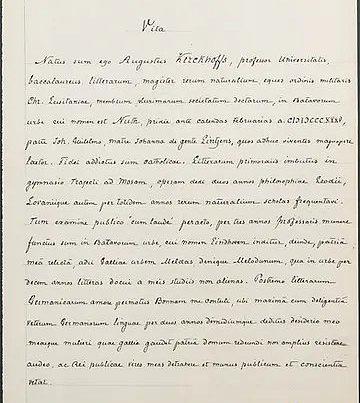 Vita
Natus sum ego Augustus Kerckhoffs, professor Universitatis,
baccalaureus litterarum, magister rerum naturalium eques ordinis militaris
Chr. Lusitaniae, membrum plurimarum societatum doctarum, in Batavorum
urbe cui nomen est Nuth, pridie ante calendas februarias a.
patre Joh. Guilelmo, matre Johanna de gente Lintjens, quos adhuc viventes magnopere
laetor. Fidei addictus sum catholicae. Litterarum primordiis imbutus in
gymnasio Trajecti ad Mosam, operam dedi duos annos philosophiae Leodii,
Lovanique autem per totidem annos rerum naturalium scholas frequentavi.
Tum examine publico "cum laude" peracto, per tres annos professoris munere
functus sum in Batavorum urbe, cui nomen Eindhoven inditur, deinde, patriâ
meâ relictâ, adii Galliae urbem Meldas, denique Melodunum, qua in urbe per
decem annos litteras docui a meis studiis non alienas. Postremo litterarum
Germanicarum amore permotus Bonnam me contuli, ubi maximâ cum diligentiâ
veterum Germanorum linguae per duos annos dimidiumque deditus desiderio meo
meaeque mulieri quae gallia gaudet patriâ domum redeundi non amplius resistere
audeo, ac Rei publicae vires meas detrahere et munus publicum et conscientia
vetat.